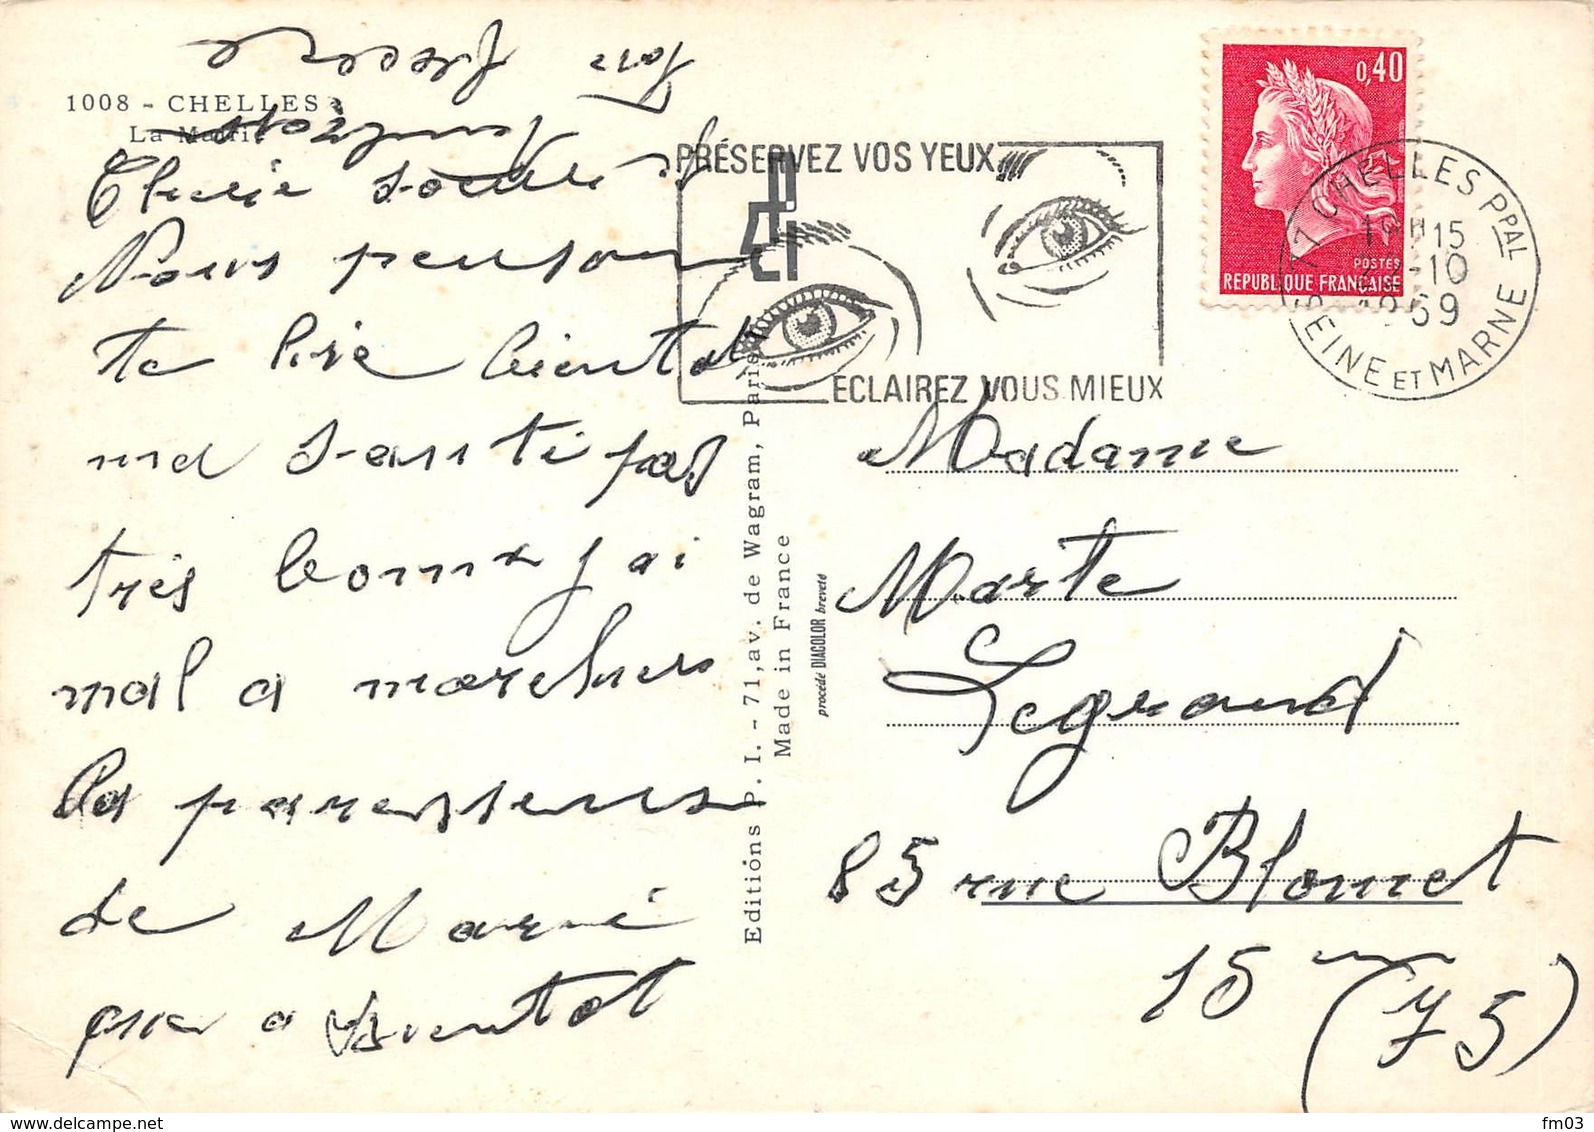 1008 - CHELLES
La Mairie
Cherie soeur
Nous pensons
te lire bientot
ma santi pas
tres bonne j ai
mal a marcher
la paresseuse
de Marie
a bientot
PRÉSERVEZ VOS YEUX
ECLAIREZ VOUS MIEUX
0,40
POSTES
REPUBLIQUE FRANÇAISE
77 CHELLES PPAL
15
-10
1969
SEINE ET MARNE
Editións P. I. - 71, av. de Wagram, Paris
Made in France
procédé DIACOLOR breveté
Madame
Marte
Legrand
85 rue Blomet
15 (75)
fm03